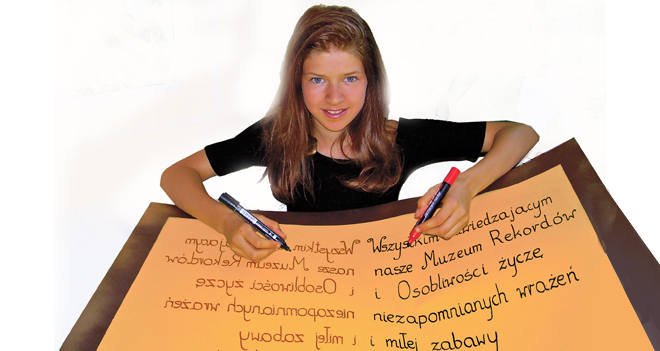 Wszystkim
nasze Muzeum Rekordów
i Osobliwości życzę
niezapomnianych wrażeń
i miłej zabawy
Wszystkim zwiedzającym
nasze Muzeum Rekordów
i Osobliwości życzę
niezapomnianych wrażeń
i miłej zabawy